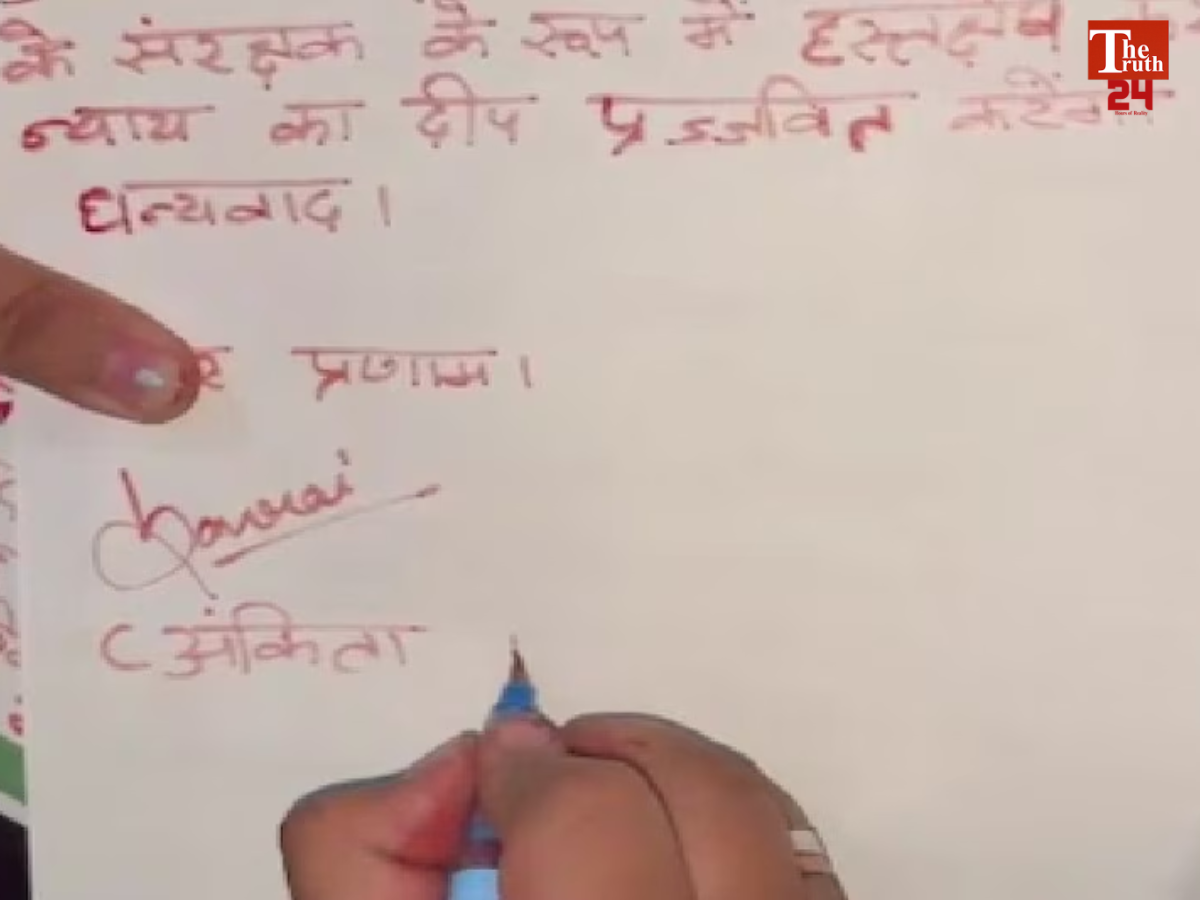 के संरक्षक के रूप में हस्तक्षेप
न्याय का दीप प्रज्जवित करेंगे
धन्यवाद।
प्रणाम।
(अंकिता
The Truth
24